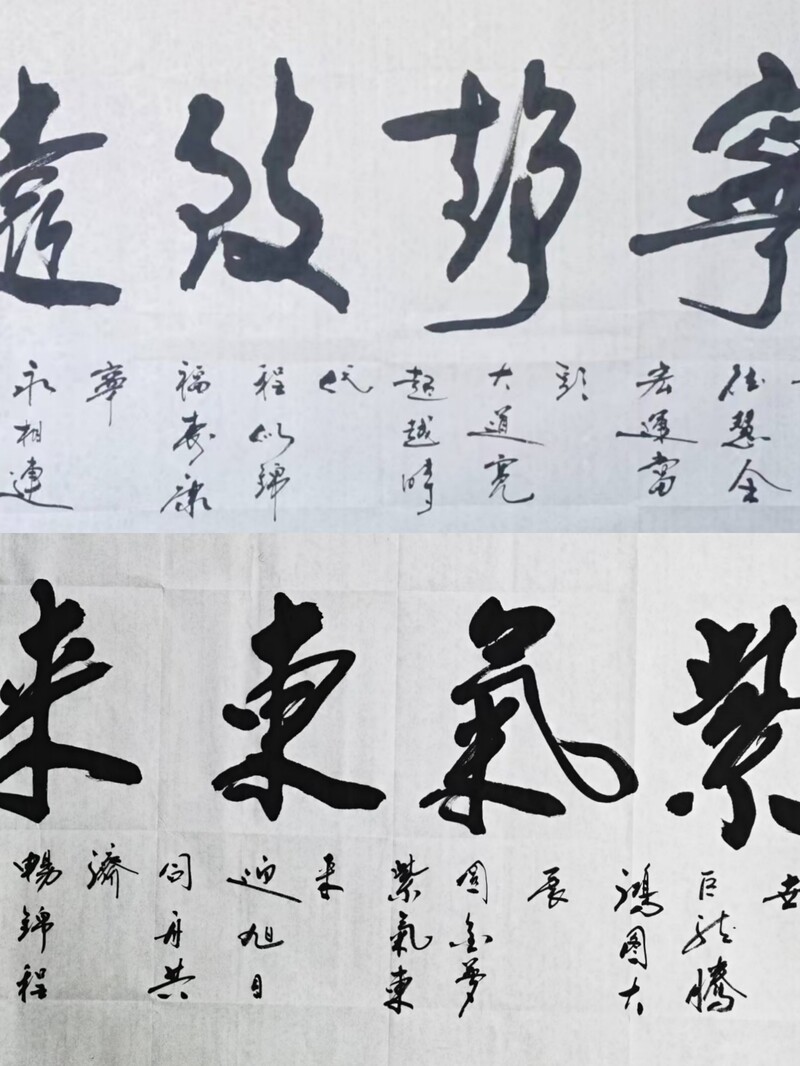 寧靜致遠
慧全
宏運當
頭
大道
超越時
代
程似錦
福壽康
寧
永相連
紫氣東来
世
巨龍騰
鴻圖大
展
圓金夢
紫氣東
来
迎旭日
同舟共
濟
暢錦程